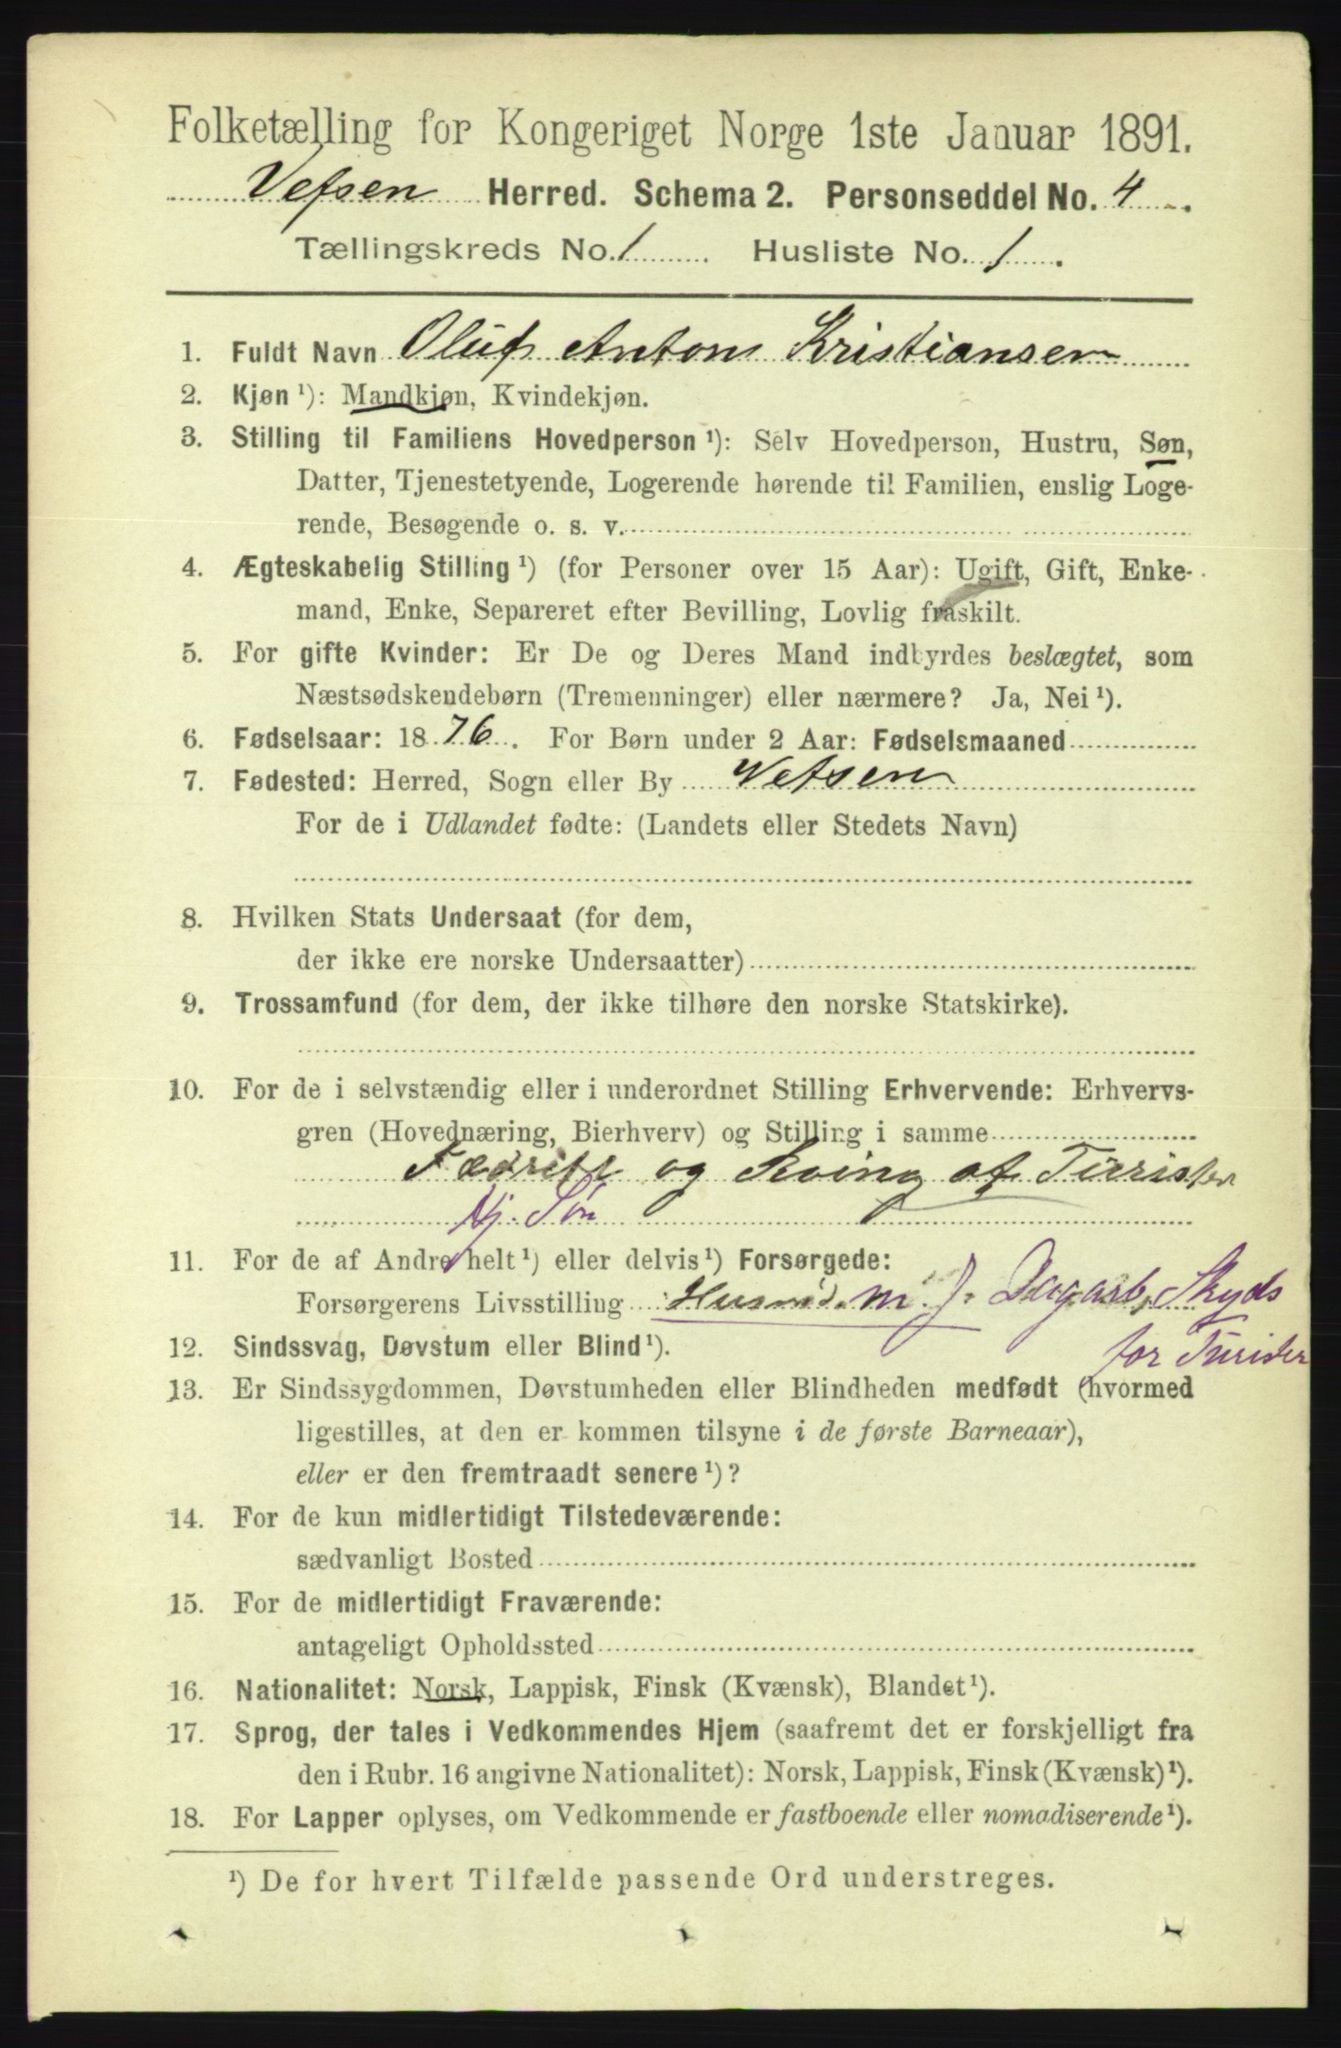 Folketælling for Kongeriget Norge 1ste Januar 1891.
Vefsen Herred. Schema 2. Personseddel No. 4.
Tællingskreds No. 1 Husliste No. 1.
1. Fuldt Navn Oluf Anton Kristiansen
2. Kjøn ¹): Mandkjøn, Kvindekjøn.
3. Stilling til Familiens Hovedperson ¹): Selv Hovedperson, Hustru, Søn,
Datter, Tjenestetyende, Logerende hørende til Familien, enslig Loge-
rende, Besøgende o. s. v.
4. Ægteskabelig Stilling ¹) (for Personer over 15 Aar): Ugift, Gift, Enke-
mand, Enke, Separeret efter Bevilling, Lovlig fraskilt.
5. For gifte Kvinder: Er De og Deres Mand indbyrdes beslægtet, som
Næstsødskendebørn (Tremenninger) eller nærmere? Ja, Nei ¹).
6. Fødselsaar: 1876. For Børn under 2 Aar: Fødselsmaaned
7. Fødested: Herred, Sogn eller By Vefsen
For de i Udlandet fødte: (Landets eller Stedets Navn)
8. Hvilken Stats Undersaat (for dem,
der ikke ere norske Undersaatter)
9. Trossamfund (for dem, der ikke tilhøre den norske Statskirke).
10. For de i selvstændig eller i underordnet Stilling Erhvervende: Erhvervs-
gren (Hovednæring, Bierhverv) og Stilling i samme
og af Turister
Hj. Søn
11. For de af Andre helt ¹) eller delvis ¹) Forsørgede:
Forsørgerens Livsstilling Husmd. m. J. Dagarb, Skyds
for Turister
12. Sindssvag, Døvstum eller Blind ¹).
13. Er Sindssygdommen, Døvstumheden eller Blindheden medfødt (hvormed
ligestilles, at den er kommen tilsyne i de første Barneaar),
eller er den fremtraadt senere ¹)?
14. For de kun midlertidigt Tilstedeværende:
sædvanligt Bosted
15. For de midlertidigt Fraværende:
antageligt Opholdssted
16. Nationalitet: Norsk, Lappisk, Finsk (Kvænsk), Blandet ¹).
17. Sprog, der tales i Vedkommendes Hjem (saafremt det er forskjelligt fra
den i Rubr. 16 angivne Nationalitet): Norsk, Lappisk, Finsk (Kvænsk) ¹).
18. For Lapper oplyses, om Vedkommende er fastboende eller nomadiserende ¹).
¹) De for hvert Tilfælde passende Ord understreges.